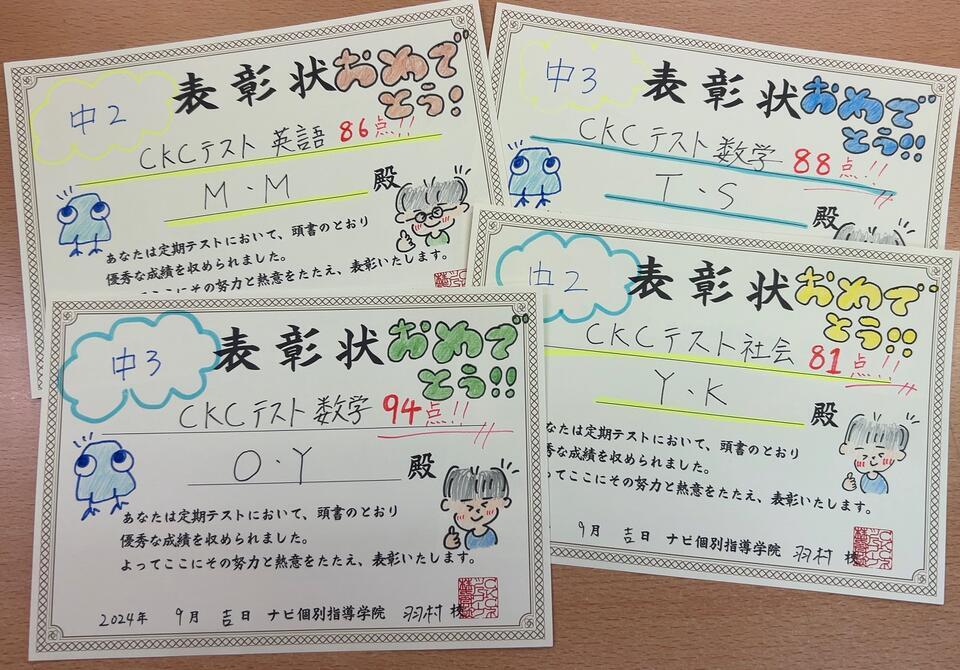 中2
表彰状
おめでとう!
CKCテスト 英語 86点!!
M・M 殿
あなたは定期テストにおいて、頭書のとおり
優秀な成績を収められました。
よってここにその努力と熱意をたたえ、表彰いたします。
中3
表彰状
おめでとう!!
CKCテスト 数学 88点!!
T・S 殿
中3
表彰状
おめでとう!!
CKCテスト 数学 94点!!
O・Y 殿
あなたは定期テストにおいて、頭書のとおり
優秀な成績を収められました。
よってここにその努力と熱意をたたえ、表彰いたします。
2024年 9月 吉日 ナビ個別指導学院 羽村 校
中2
表彰状
おめでとう!!
CKCテスト 社会 81点!!
Y・K 殿
なたは定期テストにおいて、頭書のとおり
秀な成績を収められました。
ってここにその努力と熱意をたたえ、表彰いたします。
9月 吉日 ナビ個別指導学院 羽村 校